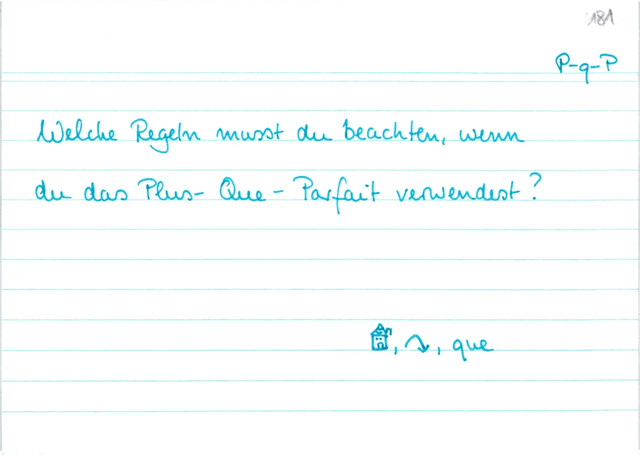 181
P-q-P
Welche Regeln musst du beachten, wenn
du das Plus-Que-Parfait verwendest?
, , que